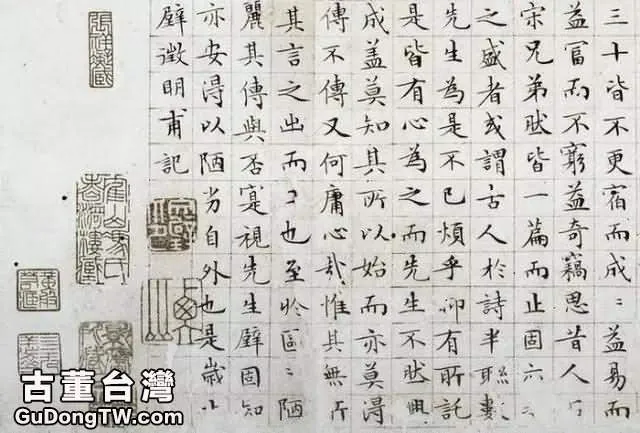 三十皆不更宿而成〻益易而
益富而不窮益奇竊思昔人
宋兄弟賦皆一篇而止固
之盛者或謂古人於詩半聯數
先生為是不已煩乎抑有所託
是皆有心為之而先生不然興
成蓋莫知其所以始而亦莫得
傳不傳又何庸心哉惟其無所
其言之出而〻也至於區〻陋
麗其傳與否寔視先生壁固知
亦安得以陋劣自外也是歲十
壁徵明甫記
古董台灣
GuDongTW.com